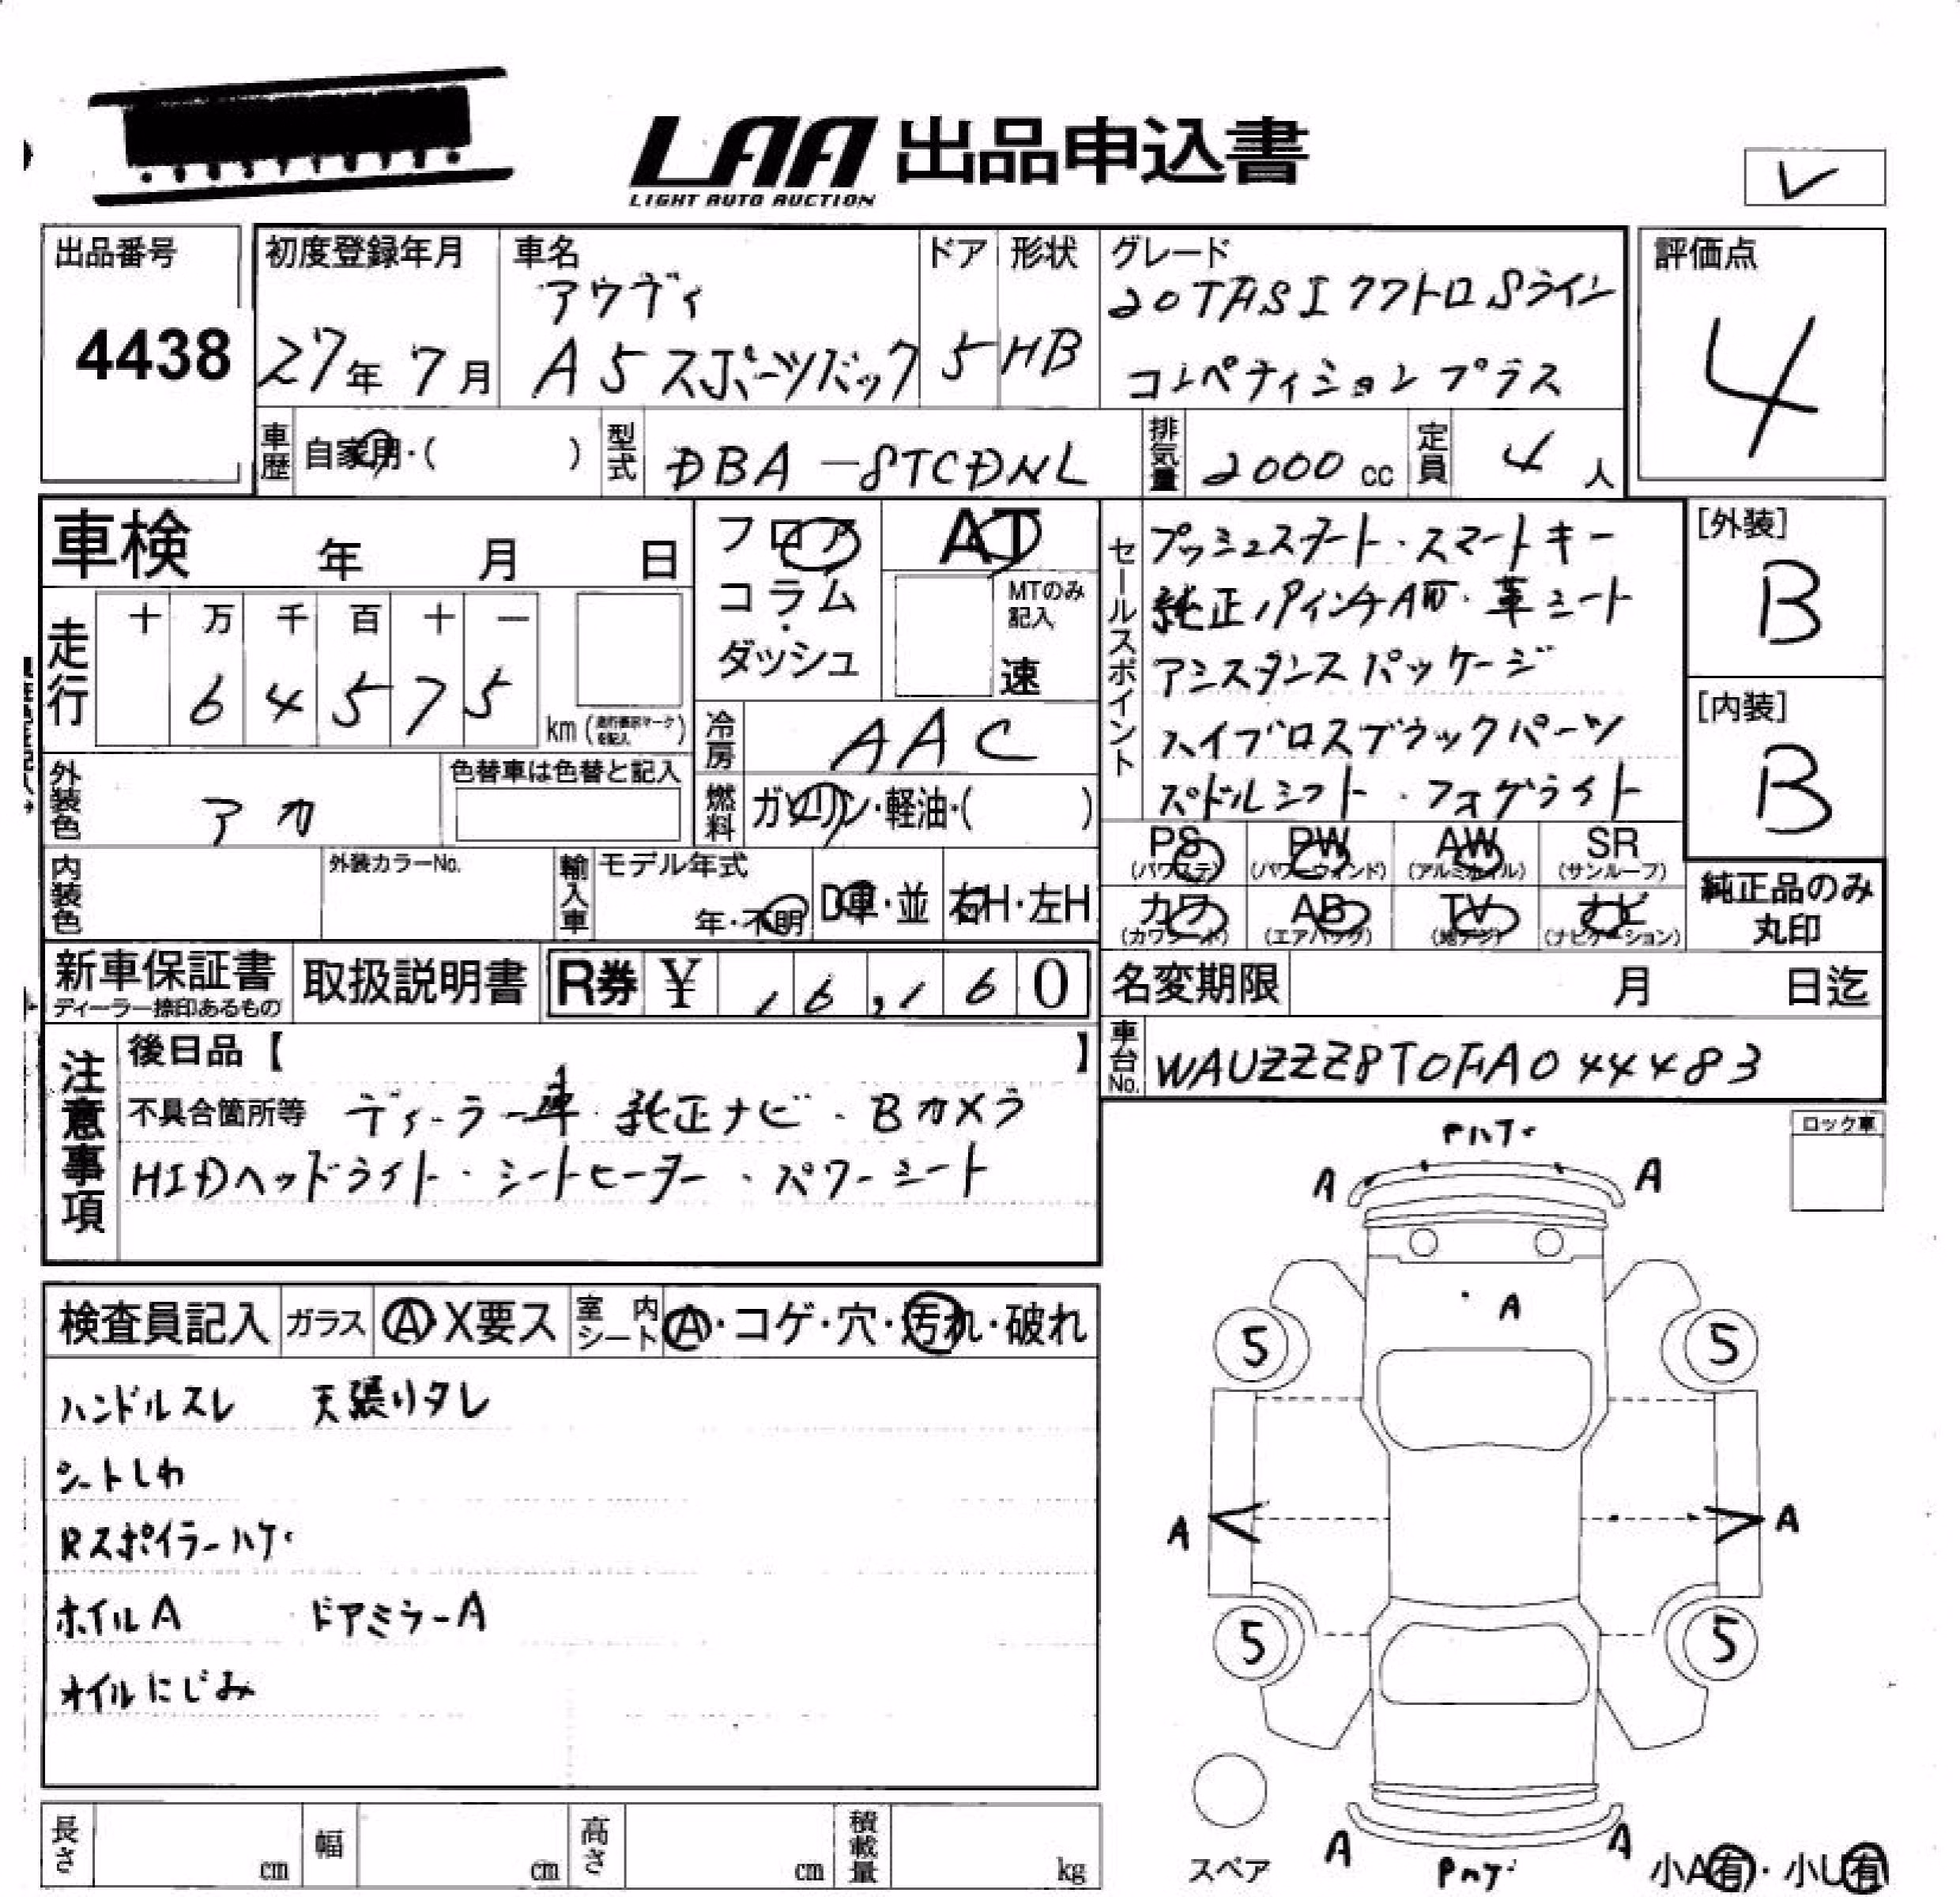 LAA 出品申込書
LIGHT AUTO AUCTION
出品番号
4438
初度登録年月
27年 7月
車名
アウディ
A5スポーツバック
ドア
5
形状
HB
グレード
20TFSI クワトロ Sライン
コンペティションプラス
評価点
4
車歴 自家用・( )
型式 DBA-8TCDNL
排気量 2000 cc
定員 4 人
車検 年 月 日
フロア
コラム
・
ダッシュ
AT
MTのみ
記入
速
走行
十 万 千 百 十 一
6 4 5 7 5
km
冷房 AAC
外装色 アカ
色替車は色替と記入
燃料 ガソリン・軽油・( )
内装色
外装カラーNo.
輸入車
モデル年式
年・不明
D車・並 右H・左H
セールスポイント
プッシュスタート・スマートキー
純正19インチAW・革シート
アシスタンスパッケージ
ハイグロスブラックパーツ
パドルシフト・フォグライト
[外装]
B
[内装]
B
PS PW AW SR
(パワステ) (パワーウィンド) (アルミホイル) (サンルーフ)
カワ AB TV ナビ
(カワシート) (エアバッグ) (地デジ) (ナビゲーション)
純正品のみ
丸印
新車保証書
ディーラー捺印あるもの
取扱説明書
R券 ¥ 16,160
名変期限 月 日迄
車台No. WAUZZZ8T0FA044483
注意事項
後日品【 】
不具合箇所等 ディーラー車・純正ナビ・Bカメラ
HIDヘッドライト・シートヒーター・パワーシート
ロック車
検査員記入 ガラス A X要ス 室内シート A・コゲ・穴・汚れ・破れ
ハンドルスレ 天張りタレ
シートしわ
Rスポイラーハゲ
ホイルA ドアミラーA
オイルにじみ
A A
A
5 5
A A
5 5
A A
スペア
小A有・小U有
長さ cm 幅 cm 高さ cm 積載量 kg